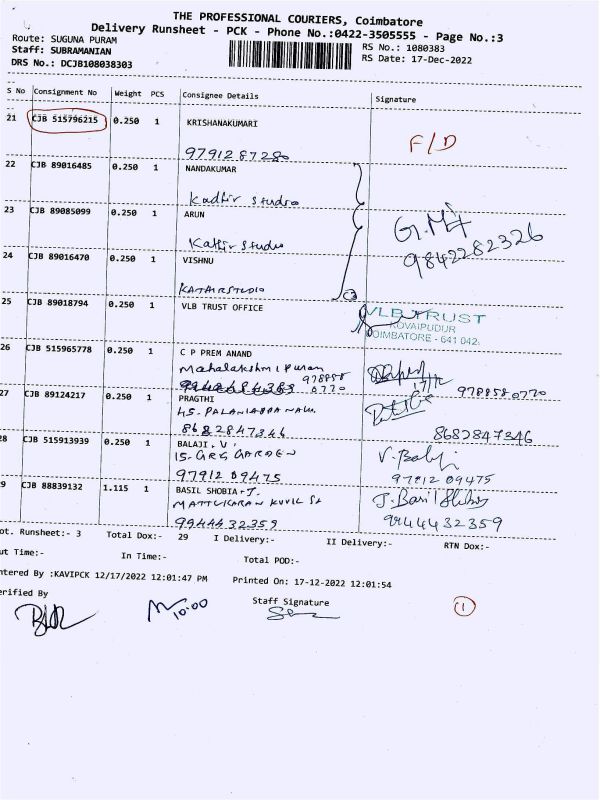 THE PROFESSIONAL COURIERS, Coimbatore
Delivery Runsheet - PCK - Phone No.:0422-3505555 - Page No.:3
Route: SUGUNA PURAM
RS No.: 1080383
Staff: SUBRAMANIAN
RS Date: 17-Dec-2022
DRS No.: DCJB108038303
S No Consignment No Weight PCS Consignee Details Signature
21 CJB 515796215 0.250 1 KRISHANAKUMARI
F/D
9791287280
22 CJB 89016485 0.250 1 NANDAKUMAR
Kadhir Studio
23 CJB 89085099 0.250 1 ARUN
Kathir Studio
9842282326
24 CJB 89016470 0.250 1 VISHNU
KATHIR STUDIO
25 CJB 89018794 0.250 1 VLB TRUST OFFICE
VLB TRUST
KOVAIPUDUR
COIMBATORE - 641 042.
26 CJB 515965778 0.250 1 C P PREM ANAND
Mahalakshmi Puram
978858 0770
17/12
978858 0770
27 CJB 89124217 0.250 1 PRAGTHI
45. PALANIAPPA NAGAR
8682847346
8682847346
28 CJB 515913939 0.250 1 BALAJI. V.
15. GRG GARDEN
V. Balaji
97912 09475
97912 09475
29 CJB 88839132 1.115 1 BASIL SHOBIA. J.
MATTUKARAN KOVIL St
J. Basil Shobia
9944432359
9944432359
ot. Runsheet:- 3 Total Dox:- 29 I Delivery:- II Delivery:- RTN Dox:-
ut Time:- In Time:- Total POD:-
ntered By :KAVIPCK 12/17/2022 12:01:47 PM Printed On: 17-12-2022 12:01:54
erified By
10:00
Staff Signature
1